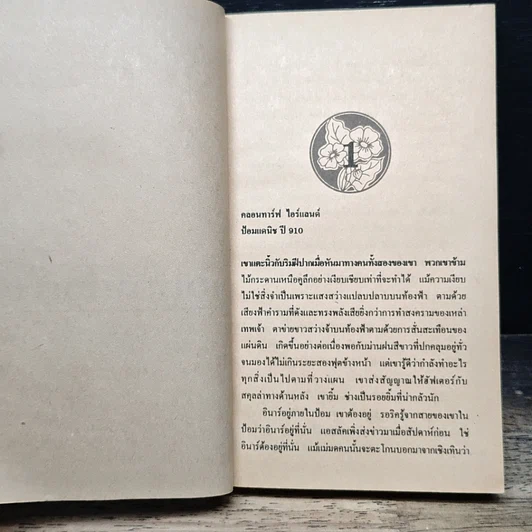 1
คลอนทาร์ฟ ไอร์แลนด์
ป้อมแดนิช ปี 910
เขาแตะนิ้วกับริมฝีปากเมื่อหันมาทางคนทั้งสองของเขา พวกเขาข้าม
ไม้กระดานเหนือคูลึกอย่างเงียบเชียบเท่าที่จะทำได้ แม้ความเงียบ
ไม่ใช่สิ่งจำเป็นเพราะแสงสว่างแปลบปลาบบนท้องฟ้า ตามด้วย
เสียงฟ้าคำรามที่ดังและทรงพลังเสียยิ่งกว่าการทำสงครามของเหล่า
เทพเจ้า ตาข่ายขาวสว่างจ้าบนท้องฟ้าตามด้วยการสั่นสะเทือนของ
แผ่นดิน เกิดขึ้นอย่างต่อเนื่องพอกับม่านฝนสีขาวที่ปกคลุมอยู่ทั่ว
จนมองได้ไม่เกินระยะสองฟุตข้างหน้า แต่เขารู้ดีว่ากำลังทำอะไร
ทุกสิ่งเป็นไปตามที่วางแผน เขาส่งสัญญาณให้ฮัฟเดอร์กับ
สคุลล่าทางด้านหลัง เขายิ้ม ช่างเป็นรอยยิ้มที่น่ากลัวนัก
อินาร์อยู่ภายในป้อม เขาต้องอยู่ รอริครู้จากสายของเขาใน
ป้อมว่าอินาร์อยู่ที่นั่น แอสลัคเพิ่งส่งข่าวมาเมื่อสัปดาห์ก่อน ใช่
อินาร์ต้องอยู่ที่นั่น แม้แม่มดคนนั้นจะตะโกนบอกมาจากเชิงเทินว่า